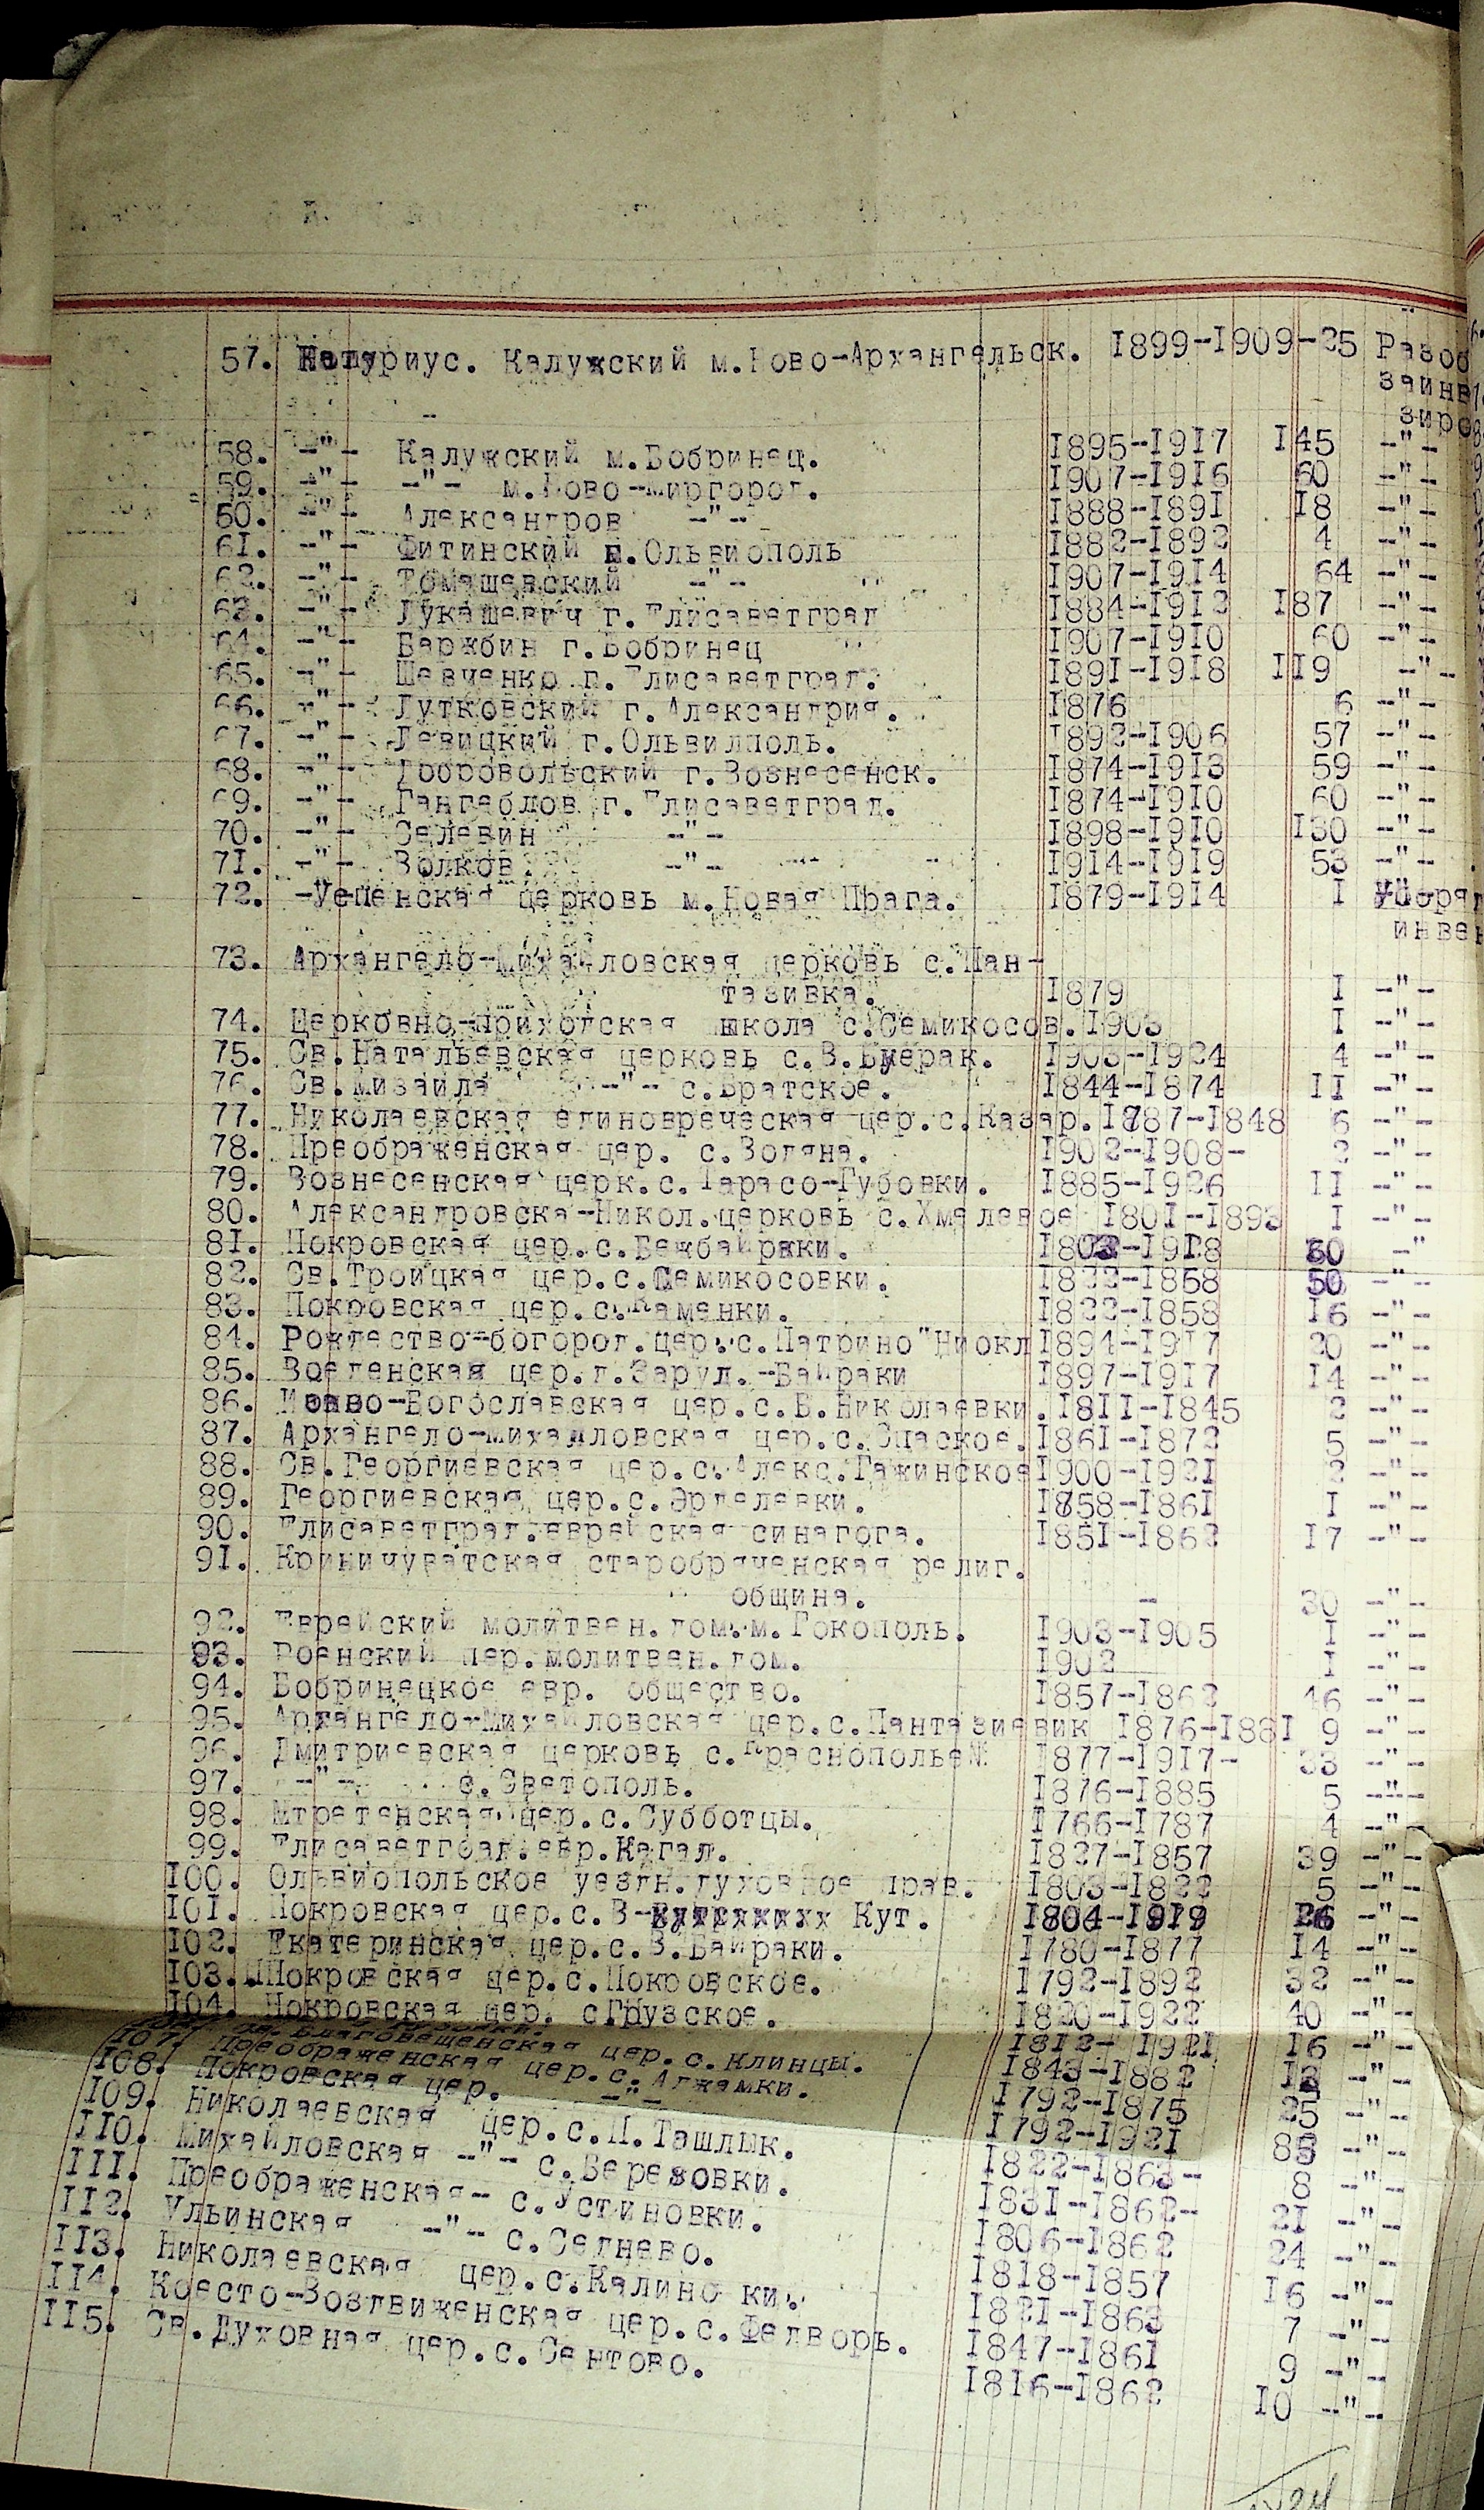 57. Нотариус. Калужский м.Ново-Архангельск. I899-I909-25 Разоб
заинв
зиро
58. -"- Калужский м.Бобринец. I895-I9I7 I45 -"-
59. -"- -"- м.Ново-Миргород. I907-I9I6 60 -"-
60. -"- Александров -"- I888-I89I I8 -"-
6I. -"- Фитинский м.Ольвиополь I882-I892 4 -"-
62. -"- Томашевский -"- I907-I9I4 64 -"-
63. -"- Лукашевич г.Елисаветград I884-I9I3 I87 -"-
64. -"- Баржбин г.Бобринец I907-I9I0 60 -"-
65. -"- Шевченко г.Елисаветград. I89I-I9I8 II9 -"-
66. -"- Лутковский г.Александрия. I876 6 -"-
67. -"- Левицкий г.Ольвилполь. I892-I906 57 -"-
68. -"- Добровольский г.Вознесенск. I874-I9I3 59 -"-
69. -"- Гангеблов г.Елисаветград. I874-I9I0 60 -"-
70. -"- Селевин -"- I898-I9I0 I30 -"-
7I. -"- Волков -"- I9I4-I9I9 53 -"-
72. -Успенская церковь м.Новая Прага. I879-I9I4 I Упоряд
инвен
73. Архангело-Михайловская церковь с.Пан-
тазивка. I879 I -"-
74. Церковно-приходская школа с.Семикосов. I903 I -"-
75. Св.Натальевская церковь с.В.Буерак. I903-I924 4 -"-
76. Св.Мизаила -"- с.Братское. I844-I874 II -"-
77. Николаевская единовреческая цер.с.Казар. I787-I848 6 -"-
78. Преображенская цер. с.Водяна. I902-I908- 2 -"-
79. Вознесенская церк.с.Тарасо-Губовки. I885-I926 II -"-
80. Александровска-Никол.церковь с.Хмелевое I80I-I893 I -"-
8I. Покровская цер.с.Бежбайраки. -I9I8 -"
82. Св.Троицкая цер.с.Семикосовки. I822-I858 50 -"-
83. Покровская цер.с.Каменки. I822-I858 I6 -"-
84. Рождество-богород.цер.с.Патрино"Ниокл I894-I9I7 20 -"-
85. Введенская цер.г.Заруд.-Байраки I897-I9I7 I4 -"-
86. Иоанно-Богославская цер.с.Б.Николаевки. I8II-I845 2 -"-
87. Архангело-михайловская цер.с.Спаское. I86I-I872 5 -"-
88. Св.Георгиевская цер.с.Алекс.Гажинское I900-I92I 2 -"-
89. Георгиевская цер.с.Эрделевки. I858-I86I I -"-
90. Елисаветград.еврейская синагога. I85I-I862 I7 -"-
9I. Криничуватская старобряченская религ.
община. - 30 -"-
92. Еврейский молитвен.дом.м.Гокополь. I903-I905 I -"-
93. Роенский цер.молитвен.дом. I902 I -"-
94. Бобринецкое евр. общество. I857-I862 46 -"-
95. Архангело-Михайловская цер.с.Пантазиевик I876-I88I 9 -"-
96. Дмитриевская церковь с.Краснополье I877-I9I7- 33 -"-
97. -"- с.Светополь. I876-I885 5 -"-
98. Мтретенская цер.с.Субботцы. I766-I787 4 -"-
99. Елисаветград.евр.Кагал. I827-I857 39 -"-
I00. Ольвиопольское уездн.духовное прав. I803-I822 5 -"-
I0I. Покровская цер.с.В- Кут. I804-I9I9 -"-
I02. Екатеринская цер.с.В.Байраки. I780-I877 I4 -"-
I03. Покровская цер.с.Покровское. I792-I892 32 -"-
I04. Покровская цер. с.Грузское. I820-I922 40 -"-
Благовещенская цер.с.Клинцы. I8I2-I92I I6 -"-
I07. Преображенская цер.с.Аджамки. I843-I882 -"-
I08. Покровская цер. -"- I792-I875 25 -"-
I09. Николаевская цер.с.П.Ташлык. I792-I92I 83 -"-
II0. Михайловская -"- с.Березовки. I822-I863- 8 -"-
III. Преображенская- с.Устиновки. I83I-I862- 2I -"-
II2. Ульинская -"- с.Седнево. I806-I862 24 -"-
II3. Николаевская цер.с.Калино ки. I8I8-I857 I6 -"-
II4. Коесто-Воздвиженская цер.с.Федворь. I82I-I863 7 -"-
II5. Св.Духовная цер.с.Сентово. I847-I86I 9 -"-
I8I6-I862 I0 -"-